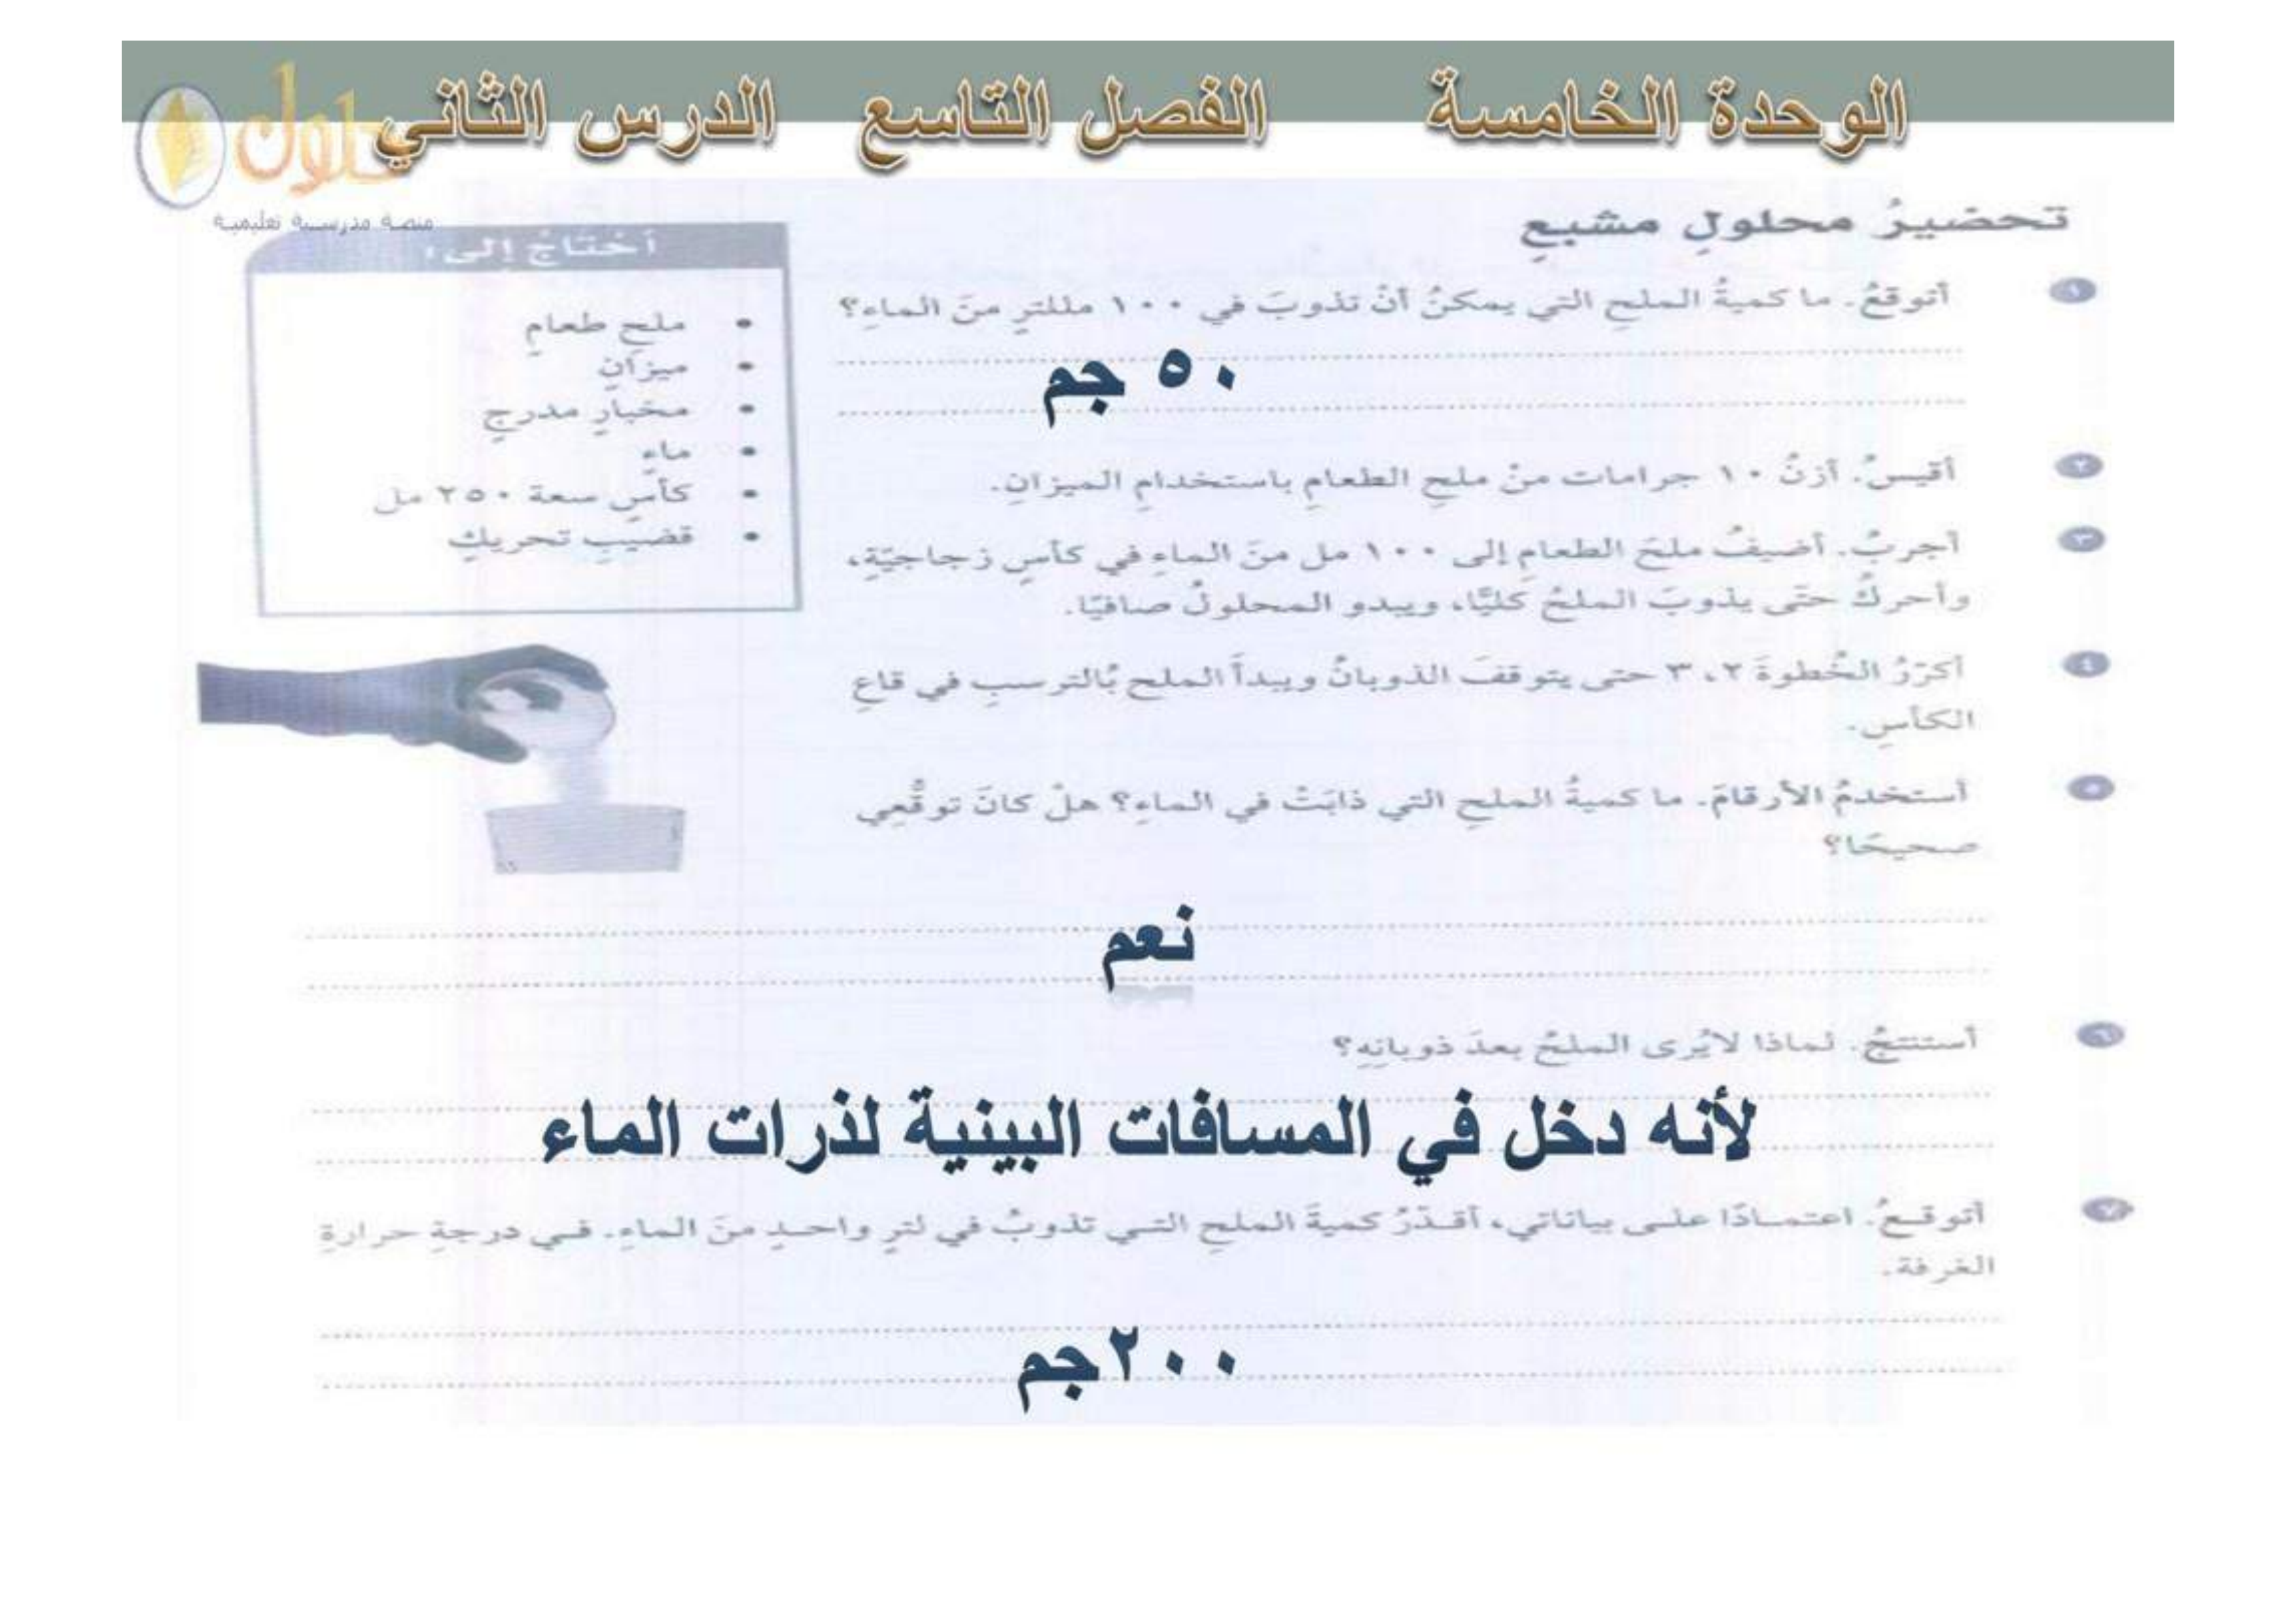 الوحدة الخامسة الفصل التاسع الدرس الثاني
حلول
منصة مدرسية تعليمية
تحضيرُ محلولٍ مشبعٍ
١ أتوقعُ. ما كميةُ الملحِ التي يمكنُ أنْ تذوبَ في ١٠٠ مللترٍ منَ الماءِ؟
٥٠ جم
٢ أقيسُ. أزنُ ١٠ جرامات منْ ملحِ الطعامِ باستخدامِ الميزانِ.
٣ أجربُ. أضيفُ ملحَ الطعامِ إلى ١٠٠ مل منَ الماءِ في كأسٍ زجاجيّةٍ،
وأحركُ حتّى يذوبَ الملحُ كليًّا، ويبدو المحلولُ صافيًا.
٤ أكرّرُ الخُطوةَ ٢، ٣ حتى يتوقفَ الذوبانُ ويبدأَ الملح بُالترسبِ في قاعِ
الكأسِ.
٥ أستخدمُ الأرقامَ. ما كميةُ الملحِ التي ذابَتْ في الماءِ؟ هلْ كانَ توقُّعِي
صحيحًا؟
نعم
٦ أستنتجُ. لماذا لايُرى الملحُ بعدَ ذوبانِهِ؟
لأنه دخل في المسافات البينية لذرات الماء
٧ أتوقعُ. اعتمادًا على بياناتي، أقدّرُ كميةَ الملحِ التي تذوبُ في لترٍ واحدٍ منَ الماءِ. في درجةِ حرارةِ
الغرفة.
٢٠٠جم
أحْتَاجُ إلى:
• ملحِ طعامٍ
• ميزانٍ
• مخبارٍ مدرجٍ
• ماءٍ
• كأسٍ سعة ٢٥٠ مل
• قضيبِ تحريكٍ